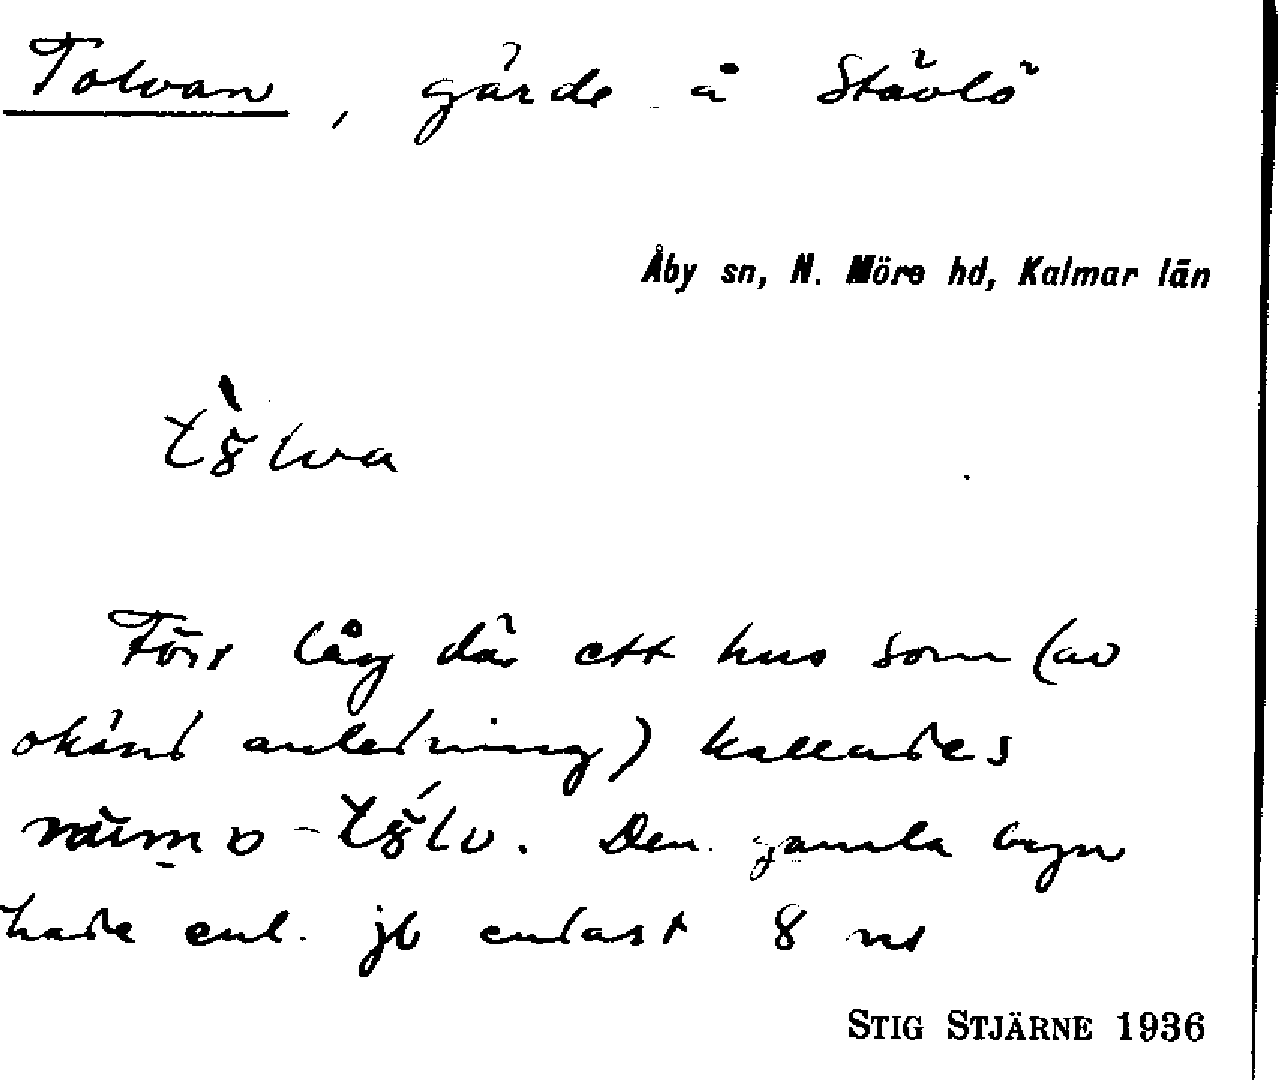 Tolvan, gärde å Stävlö
Åby sn, N. Möre hd, Kalmar län
Förr låg där ett hus som (av
okänd anledning) kallades
Den gamla byn
hade enl. jb endast 8 nr
STIG STJÄRNE 1936